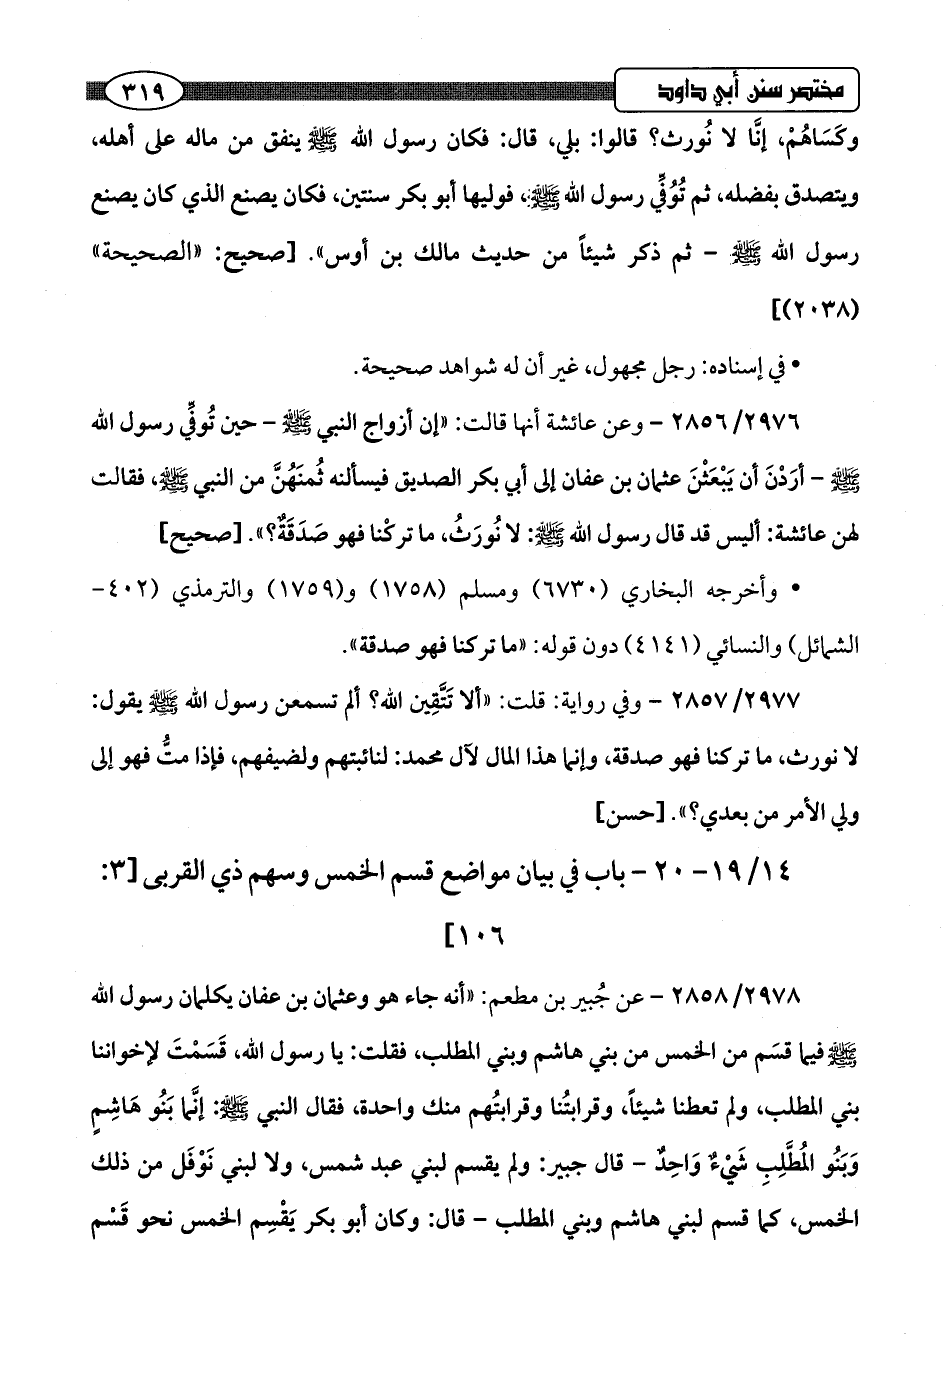 مختصر سنن أبي داود ٣١٩
وكَسَاهُمْ، إنَّا لا نُورث؟ قالوا: بلي، قال: فكان رسول الله ﷺ ينفق من ماله على أهله،
ويتصدق بفضله، ثم تُوُفِّي رسول الله ﷺ، فوليها أبو بكر سنتين، فكان يصنع الذي كان يصنع
رسول الله ﷺ – ثم ذكر شيئاً من حديث مالك بن أوس». [صحيح: «الصحيحة»
(٢٠٣٨)]
• في إسناده: رجل مجهول، غير أن له شواهد صحيحة.
٢٨٥٦/٢٩٧٦ – وعن عائشة أنها قالت: «إن أزواج النبي ﷺ – حين تُوفِّي رسول الله
ﷺ – أرَدْنَ أن يَبْعَثْنَ عثمان بن عفان إلى أبي بكر الصديق فيسألنه ثُمنَهُنَّ من النبي ﷺ، فقالت
لهن عائشة: أليس قد قال رسول الله ﷺ: لا نُورَثُ، ما تركْنا فهو صَدَقَةٌ؟». [صحيح]
• وأخرجه البخاري (٦٧٣٠) ومسلم (١٧٥٨) و(١٧٥٩) والترمذي (٤٠٢–
الشمائل) والنسائي (٤١٤١) دون قوله: «ما تركنا فهو صدقة».
٢٨٥٧/٢٩٧٧ – وفي رواية: قلت: «ألا تَتَّقِين الله؟ ألم تسمعن رسول الله ﷺ يقول:
لا نورث، ما تركنا فهو صدقة، وإنما هذا المال لآل محمد: لنائبتهم ولضيفهم، فإذا متُّ فهو إلى
ولي الأمر من بعدي؟». [حسن]
١٩/١٤– ٢٠ – باب في بيان مواضع قسم الخمس وسهم ذي القربى [٣:
١٠٦]
٢٨٥٨/٢٩٧٨ – عن جُبير بن مطعم: «أنه جاء هو وعثمان بن عفان يكلمان رسول الله
ﷺ فيما قسَم من الخمس من بني هاشم وبني المطلب، فقلت: يا رسول الله، قَسَمْتَ لإخواننا
بني المطلب، ولم تعطنا شيئاً، وقرابتُنا وقرابتُهم منك واحدة، فقال النبي ﷺ: إنَّما بَنُو هَاشِمٍ
وَبَنُو المُطَّلِبِ شَيْءٌ وَاحِدٌ – قال جبير: ولم يقسم لبني عبد شمس، ولا لبني نَوْفَل من ذلك
الخمس، كما قسم لبني هاشم وبني المطلب – قال: وكان أبو بكر يَقْسِم الخمس نحو قَسْم